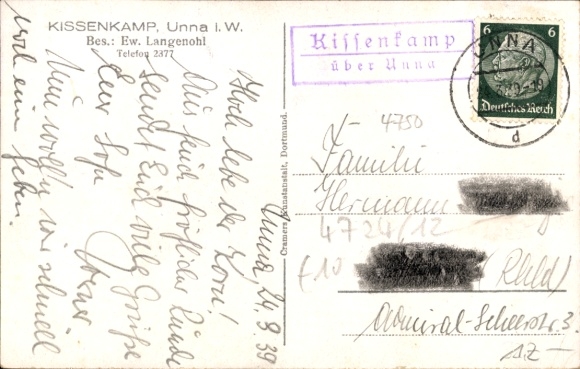 KISSENKAMP, Unna i. W.
Bes.: Ew. Langenohl
Telefon 2377
Kissenkamp
über Unna
6 6
UNNA
Deutsches Reich
d
Unna, 24.9.39
Hoch lebe der Korn!
Aus fröhlicher Runde
sendet Euch viele Grüße
Euer Sohn
Werner
Nun wollen wir schnell
noch ein
Cramers Kunstanstalt, Dortmund.
4750
Familie
Hermann
4724/12
£10
(Rhld)
Admiral-Scheerstr. 3
1Z-